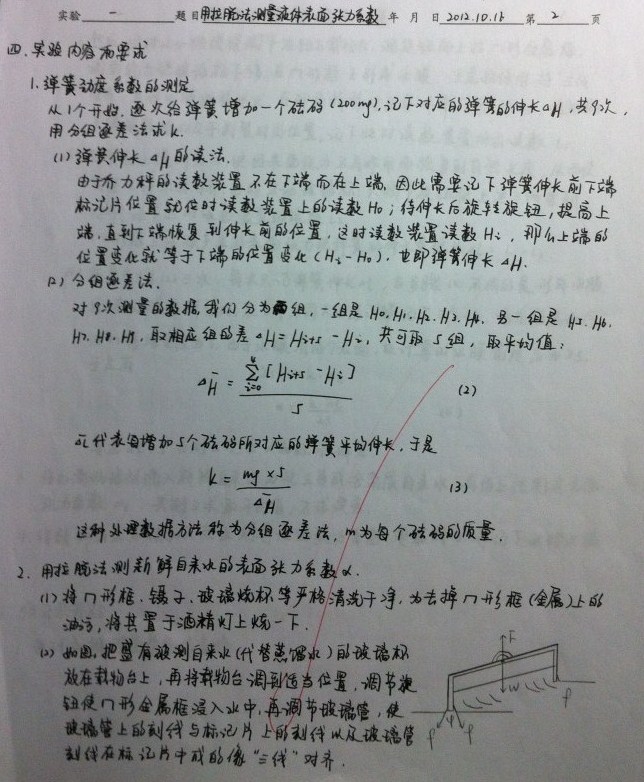 实验 一 题目 用拉脱法测量液体表面张力系数 年 月 日 2012.10.15 第 2 页
四.实验内容和要求
1.弹簧劲度系数的测定
从1个开始,逐次给弹簧增加一个砝码(200mg),记下对应的弹簧的伸长△H,共9次,
用分组逐差法求k.
(1)弹簧伸长△H的读法.
由于乔力秤的读数装置不在下端而在上端,因此需要记下弹簧伸长前下端
标记片位置 时读数装置上的读数H₀;待伸长后旋转旋钮,提高上
端,直到下端恢复到伸长前的位置,这时读数装置读数Hi,那么上端的
位置变化就等于下端的位置变化(Hi-H₀),也即弹簧伸长△H.
(2)分组逐差法.
对9次测量的数据,我们分为两组,一组是H₀.H₁.H₂.H₃.H₄.另一组是H₅.H₆.
H₇.H₈.H₉,取相应组的差△H=Hi+5-Hi,共可取5组,取平均值:
△H̄ = Σ(i=0→4)[Hi+5-Hi] / 5 (2)
代表每增加5个砝码所对应的弹簧平均伸长,于是
k = mg×5 / △H̄ (3)
这种处理数据方法称为分组逐差法,m为每个砝码的质量.
2.用拉脱法测新鲜自来水的表面张力系数α.
(1)将∏形框、镊子、玻璃烧杯等严格清洗干净,为去掉∏形框(金属)上的
油污,将其置于酒精灯上烧一下.
(2)如图,把盛有被测自来水(代替蒸馏水)的玻璃杯
放在载物台上,再将载物台调到适当位置,调节旋
钮使∏形金属框浸入水中,再调节玻璃管,使
玻璃管上的刻线与标记片上的刻线以及玻璃管
刻线在标记片中成的像"三线"对齐.
F
W
φ
f